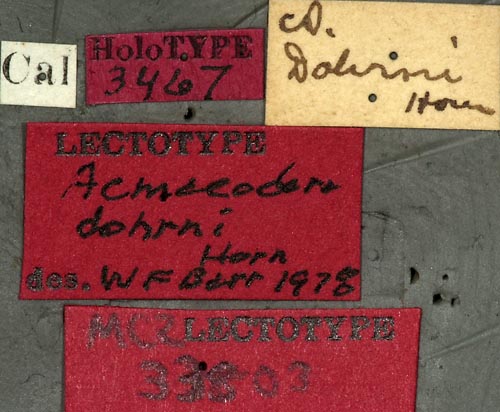 Cal
HoloTYPE
3467
Dohrni
Horn
LECTOTYPE
Acmaeodera
dohrni
Horn
des. W F Barr 1978
MCZ LECTOTYPE
33503